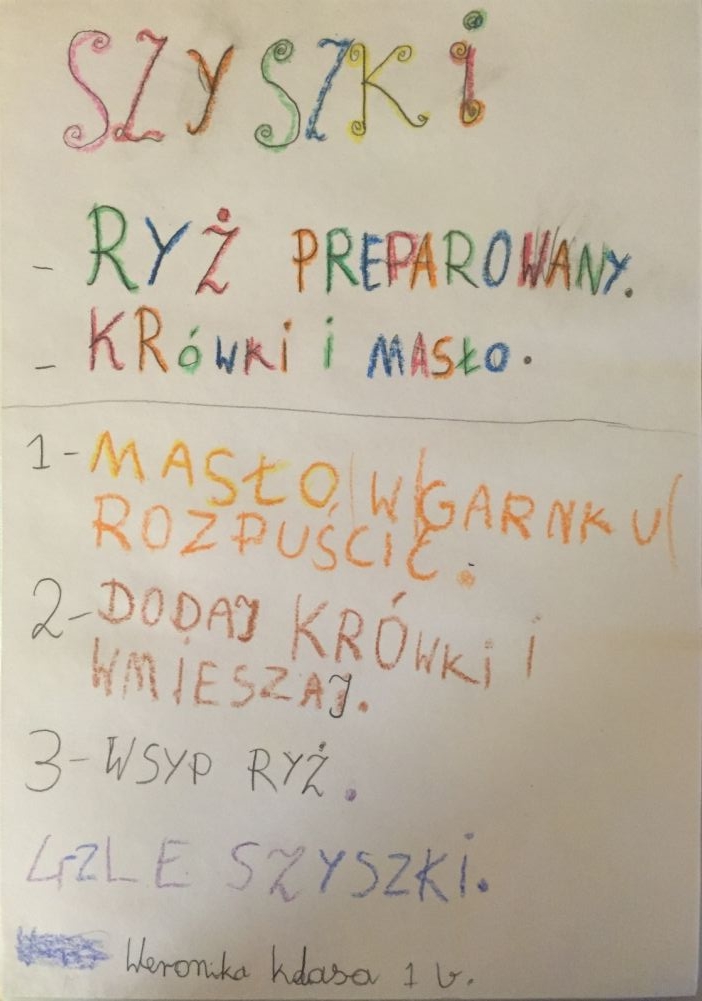 SZYSZKI
- RYŻ PREPAROWANY.
- KRÓWKI i MASŁO.
1-MASŁO W GARNKU
ROZPUŚCIĆ.
2-DODAJ KRÓWKI I
WMIESZAJ.
3-WSYP RYŻ.
4-ZLE SZYSZKI.
Weronika klasa 1 b.